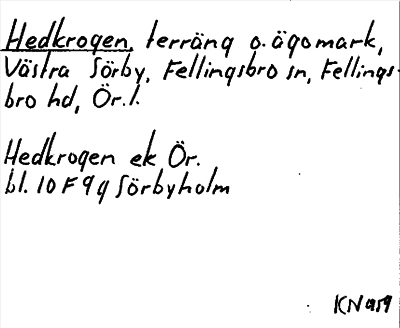 Hedkrogen, terräng o. ägomark,
Västra Sörby, Fellingsbro sn, Fellings-
bro hd, Ör. l.
Hedkrogen ek Ör.
bl. 10 F 9 g Sörbyholm
KN 1959